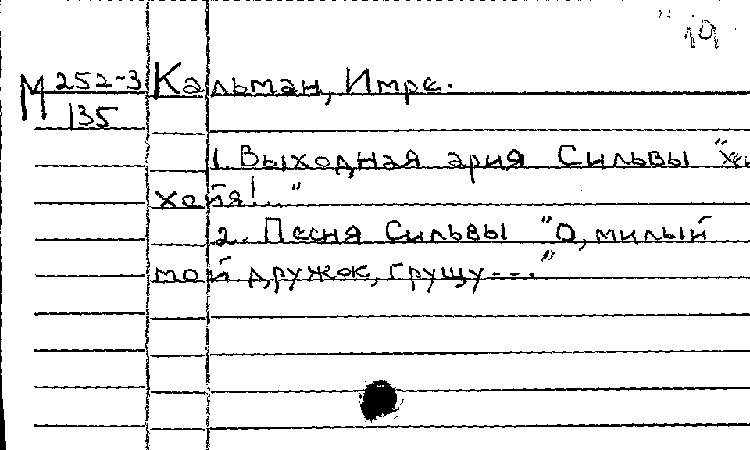 " 19
М 252-3
135
Кальман, Имре.
1. Выходная ария Сильвы
хойя!..."
2. Песня Сильвы "О, милый
мой дружок, грущу---."